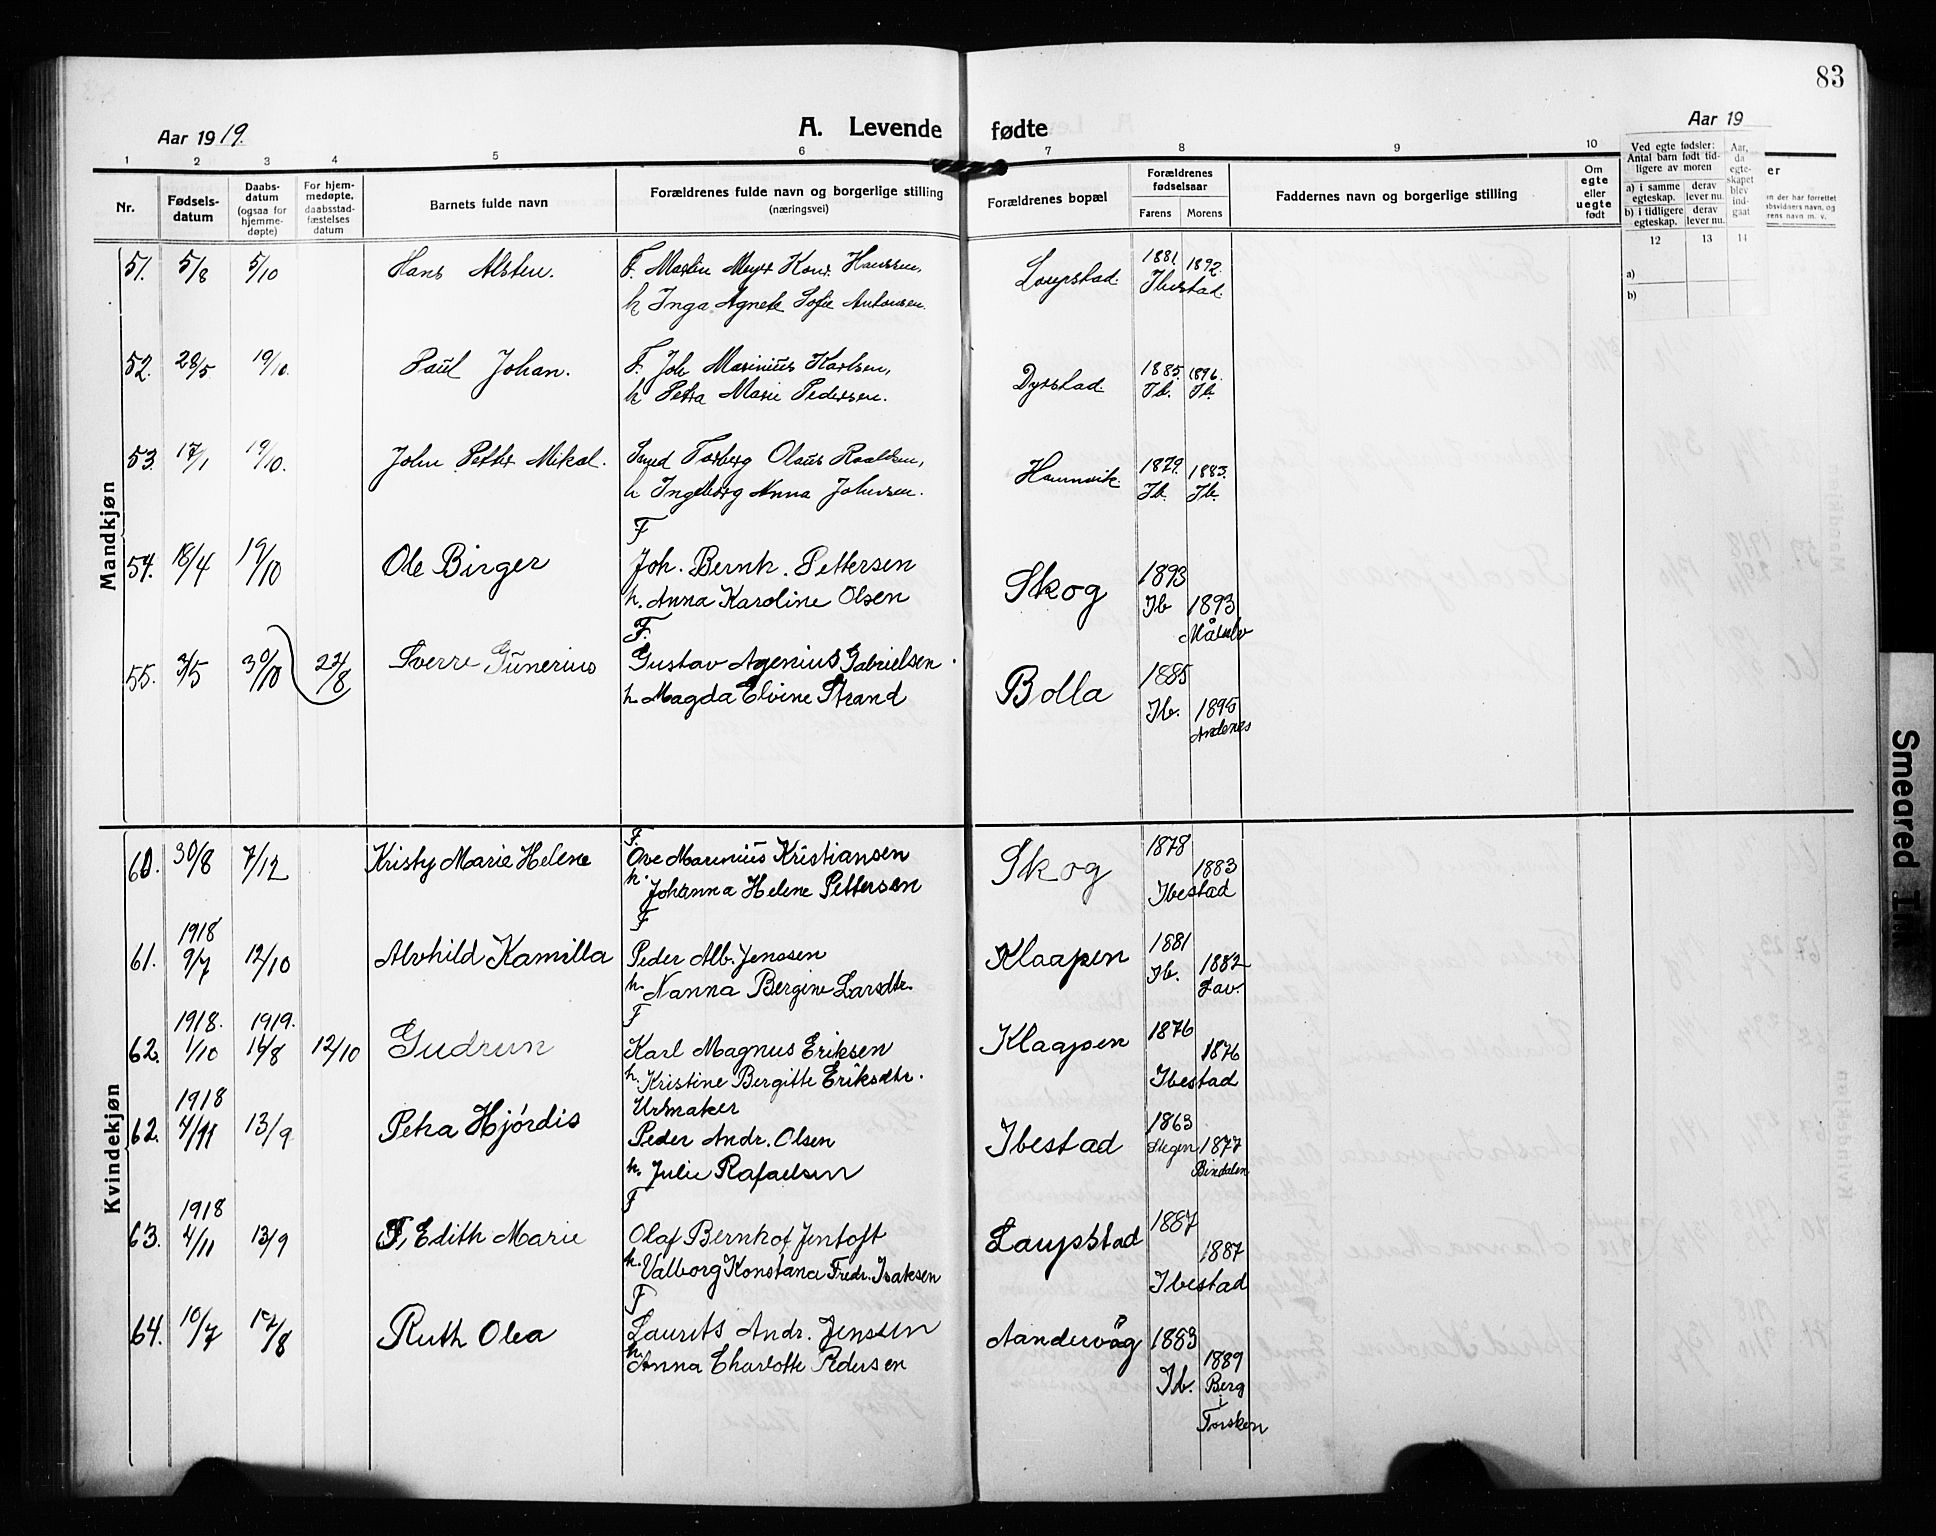 83
Aar 1919.
A. Levende fødte
Aar 19
1 2 3 4 5 6 7 8 9 10
Nr.
Fødsels-
datum
Daabs-
datum
(ogsaa for
hjemme-
døpte)
For hjem-
medøpte,
daabsstad-
fæstelses
datum
Barnets fulde navn
Forældrenes fulde navn og borgerlige stilling
(næringsvei)
Forældrenes bopæl
Forældrenes
fødselsaar
Farens Morens
Faddernes navn og borgerlige stilling
Om
egte
eller
uegte
født
Ved egte fødsler:
Antal barn født tid-
ligere av moren
a) i samme
egteskap.
derav
lever nu.
b) i tidligere
egteskap.
derav
lever nu.
Aar,
da
egte-
skapet
blev
ind-
gaat
12 13 14
a)
b)
er
en der har forrettet
absvidners navn, og
rens navn m. v.
Mandkjøn
51. 5/8 5/10 Hans Alsten. F. Martin Meyer Konr. Hanssen, Laupstad. 1881. 1892.
h Inga Agnete Sofie Antonsen. Ibestad.
52. 28/5 19/10. Paul Johan. F. Joh Marinius Karlsen, Dyrstad. 1885. 1896.
h Petra Marie Pedersen. Ib. Ib.
53. 17/1 19/10. John Petter Mikal. Torberg Olaus Roaldsen, Hamnvik. 1879. 1883.
h Ingeborg Anna Johnsen. Ib. Ib.
F
54. 18/4 19/10 Ole Birger Joh. Bernh. Pettersen Skog 1893
h. Anna Karoline Olsen Ib 1893
Målselv
F.
55. 3/5 30/10 22/8 Sverre Gunerius Gustav Agenius Gabrielsen. Bolla 1885
h. Magda Elvine Strand Ib. 1895
Andenes
Kvindekjøn
F.
60. 30/8 7/12 Kristy Marie Helene Ove Marinius Kristiansen Skog 1878
h. Johanna Helene Pettersen 1883
Ibestad
1918 F
61. 9/7 12/10 Alvhild Kamilla Peder Alb. Jenssen Klaapen 1881
h. Nanna Bergine Larsdtr. Ib. 1882
Lav.
1918. 1919. F
62. 1/10 16/8 12/10 Gudrun Karl Magnus Eriksen Klaapen 1876
h. Kristine Bergitte Eriksdtr. 1876
Ibestad
1918 Urmaker
62. 4/11 13/9 Petra Hjørdis Peder Andr. Olsen Ibestad 1863
Stegen 1877
h. Julie Rafaelsen Bindalen
1918 F
63. 4/11 13/9 F, Edith Marie Olaf Bernhof Jentoft Laupstad 1887
h. Valborg Konstana Fredr. Isaksen 1887
Ibestad
F
64. 10/7 17/8 Ruth Olea Laurits Andr. Jenssen Aandervåg 1883
h. Anna Charlotte Pedersen Ib. 1889
Berg
i
Torsken
Smeared Ink